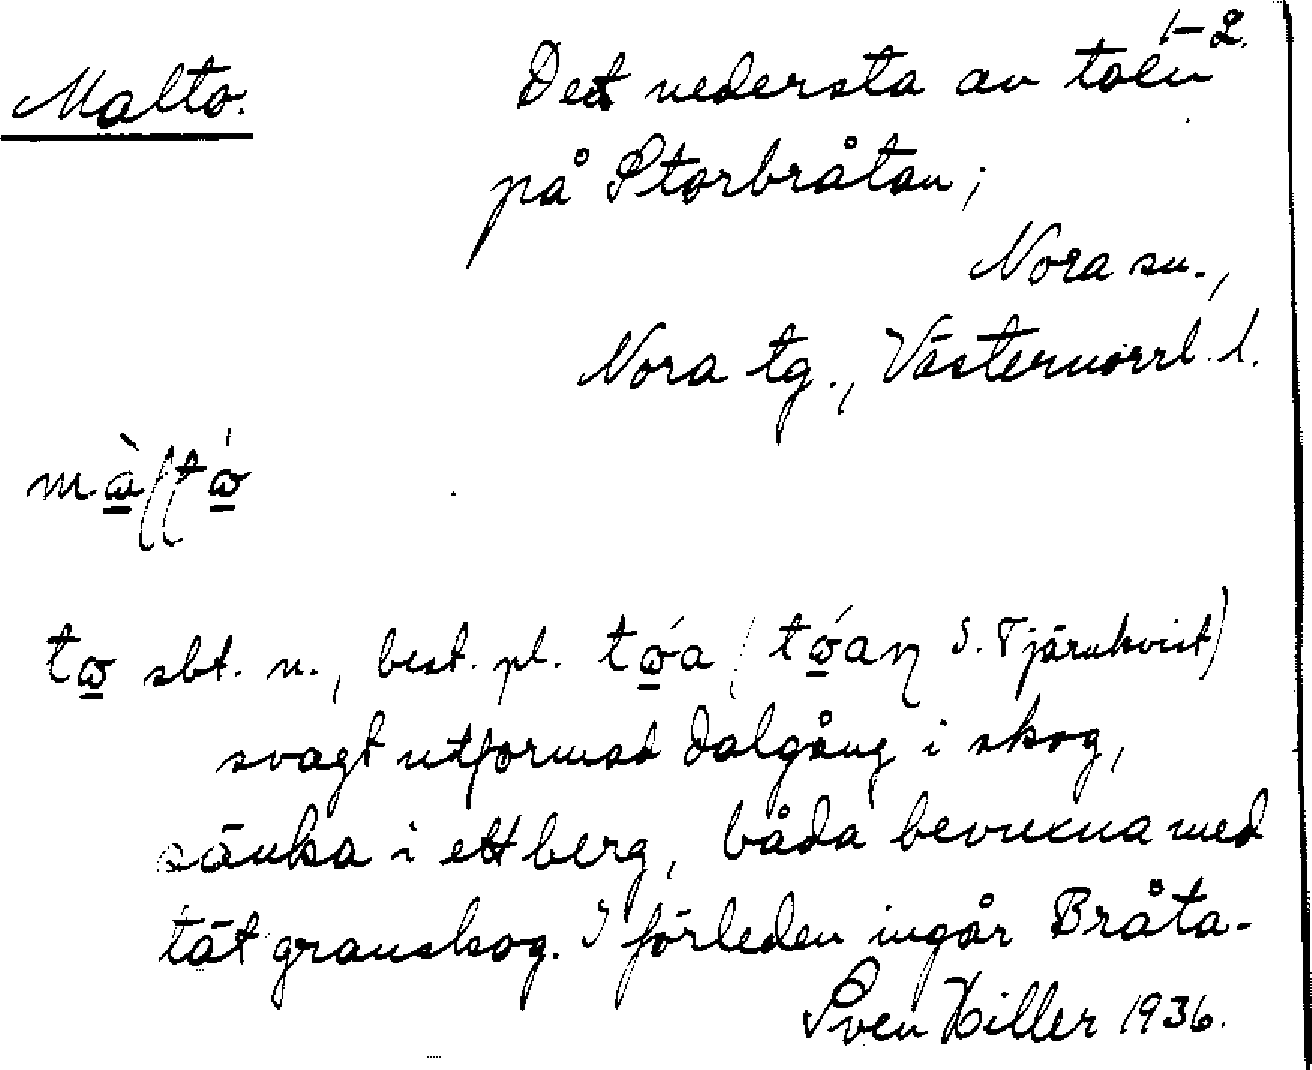 1–2.
Malto. Det nedersta av toen
på Storbråtan;
Nora sn.,
Nora tg., Västernorrl. l.
tω̲ sbt. n., best. pl. tώ̲a (tώ̲aη S. Tjärnkvist)
svagt utformad dalgång i skog,
sänka i ett berg, båda bevuxna med
tät granskog. I förleden ingår Bråta-
Sven Hiller 1936.